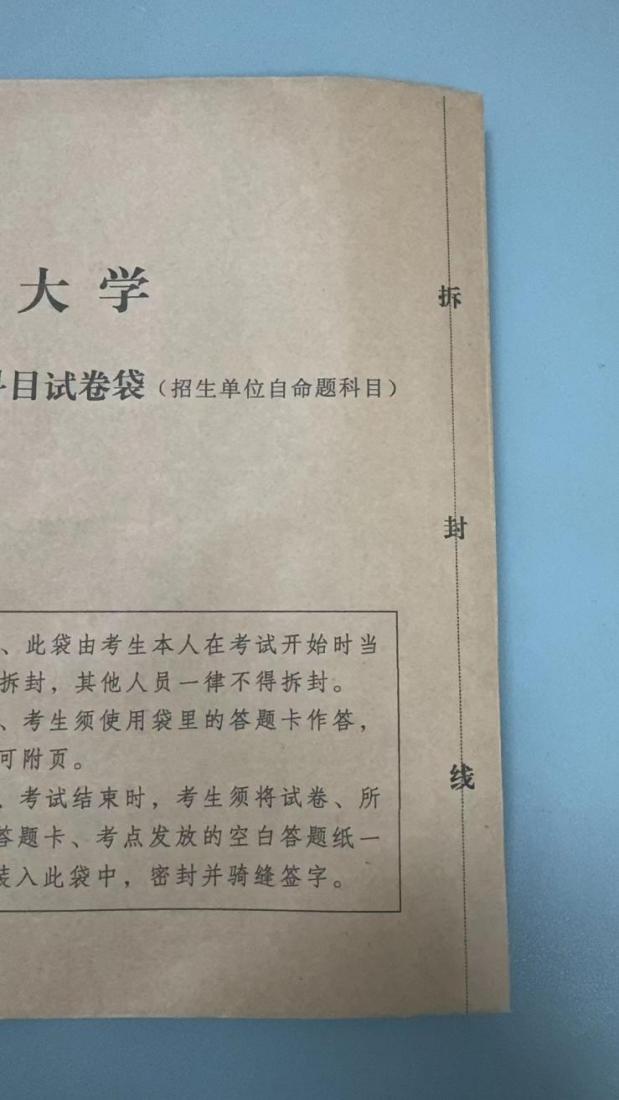 大学
目试卷袋（招生单位自命题科目）
、此袋由考生本人在考试开始时当
拆封，其他人员一律不得拆封。
、考生须使用袋里的答题卡作答，
可附页。
、考试结束时，考生须将试卷、所
答题卡、考点发放的空白答题纸一
装入此袋中，密封并骑缝签字。
拆
封
线